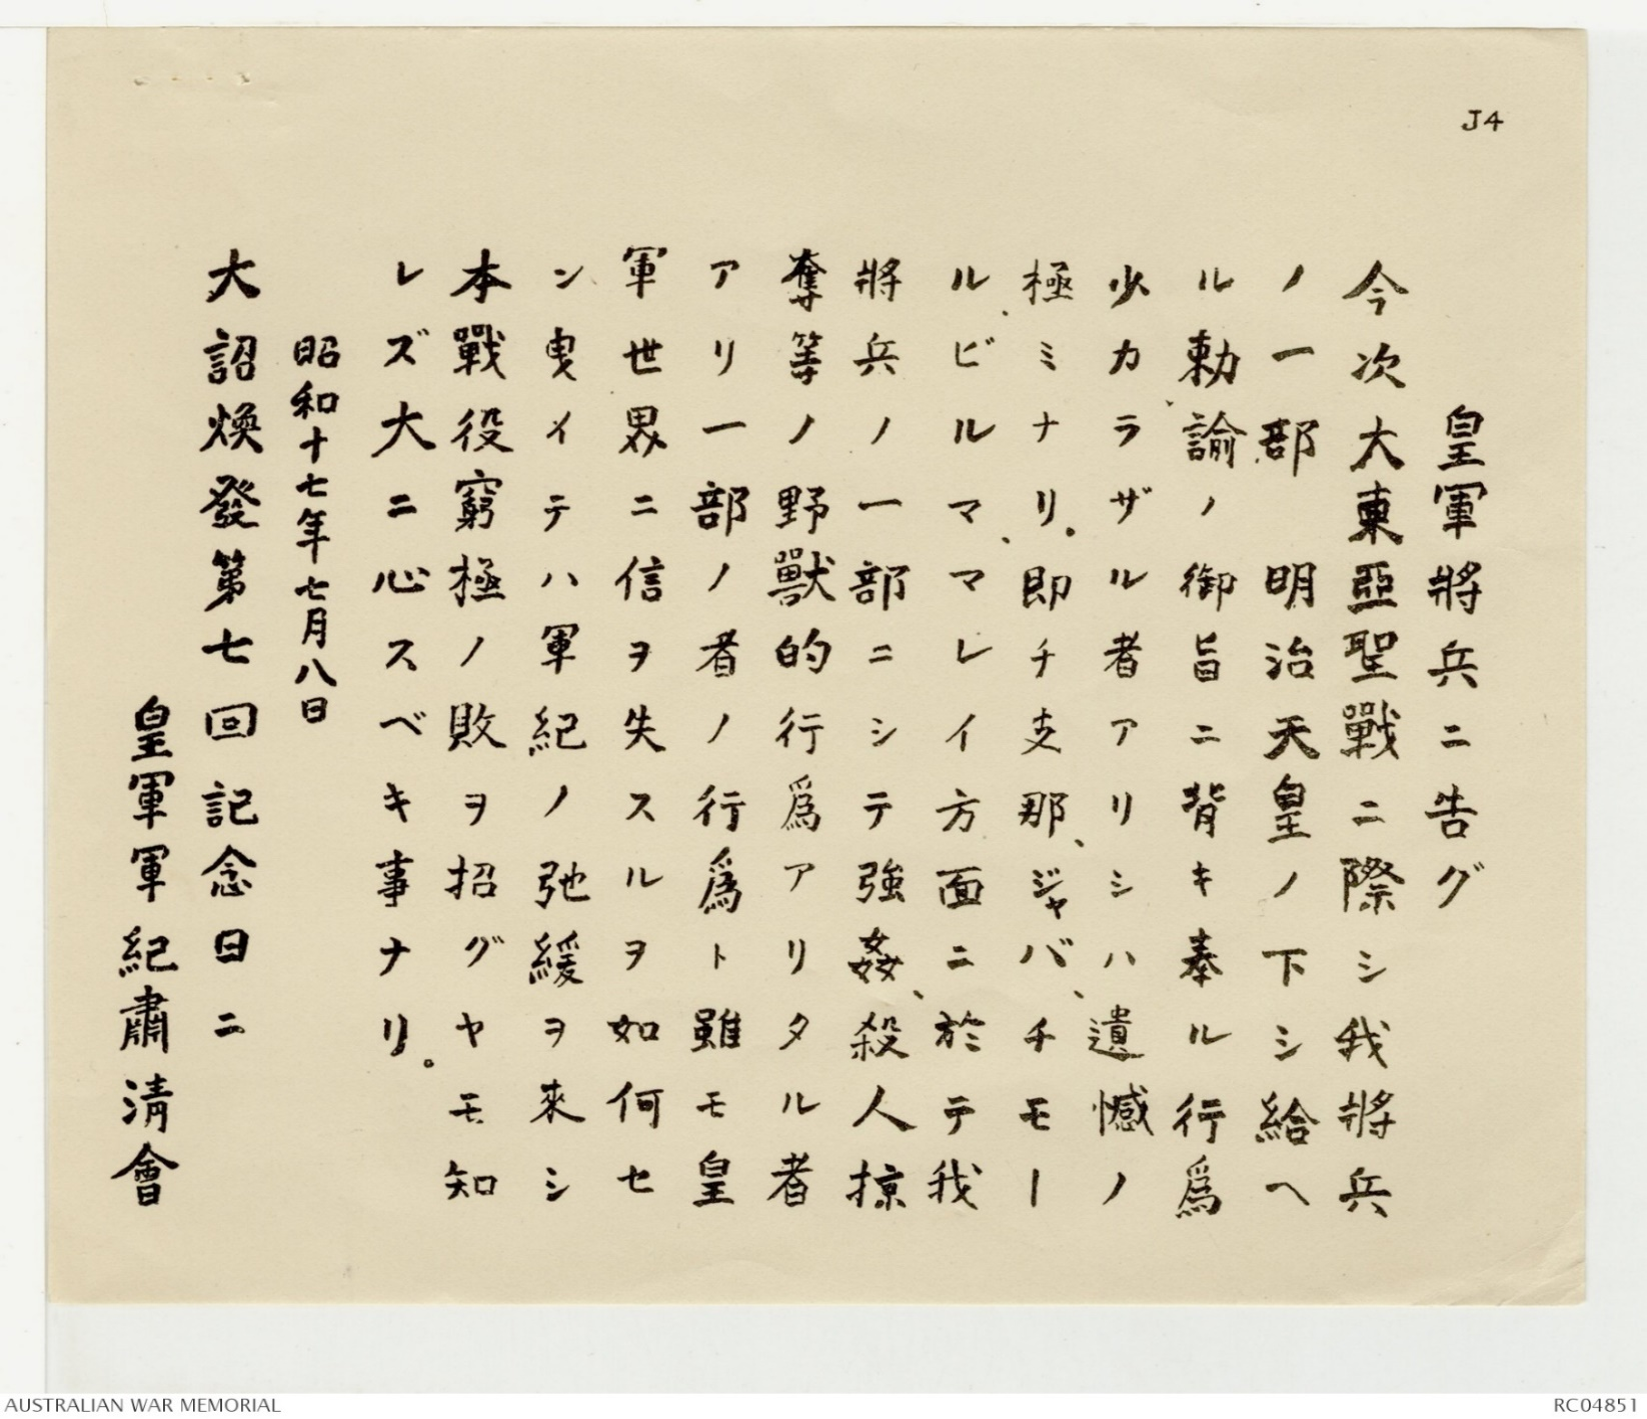 J4
皇軍將兵ニ告グ
今次大東亞聖戰ニ際シ我將兵
ノ一部 明治天皇ノ下シ給ヘ
ル勅諭ノ御旨ニ背キ奉ル行爲
少カラザル者アリシハ遺憾ノ
極ミナリ。即チ支那、ジャバ、チモー
ル、ビルマ、マレイ方面ニ於テ我
將兵ノ一部ニシテ強姦、殺人掠
奪等ノ野獸的行爲アリタル者
アリ一部ノ者ノ行爲ト雖モ皇
軍世界ニ信ヲ失スルヲ如何セ
ン曳イテハ軍紀ノ弛緩ヲ來シ
本戰役窮極ノ敗ヲ招グヤモ知
レズ大ニ心スベキ事ナリ。
昭和十七年七月八日
大詔煥發第七回記念日ニ
皇軍軍紀肅淸會
AUSTRALIAN WAR MEMORIAL
RC04851